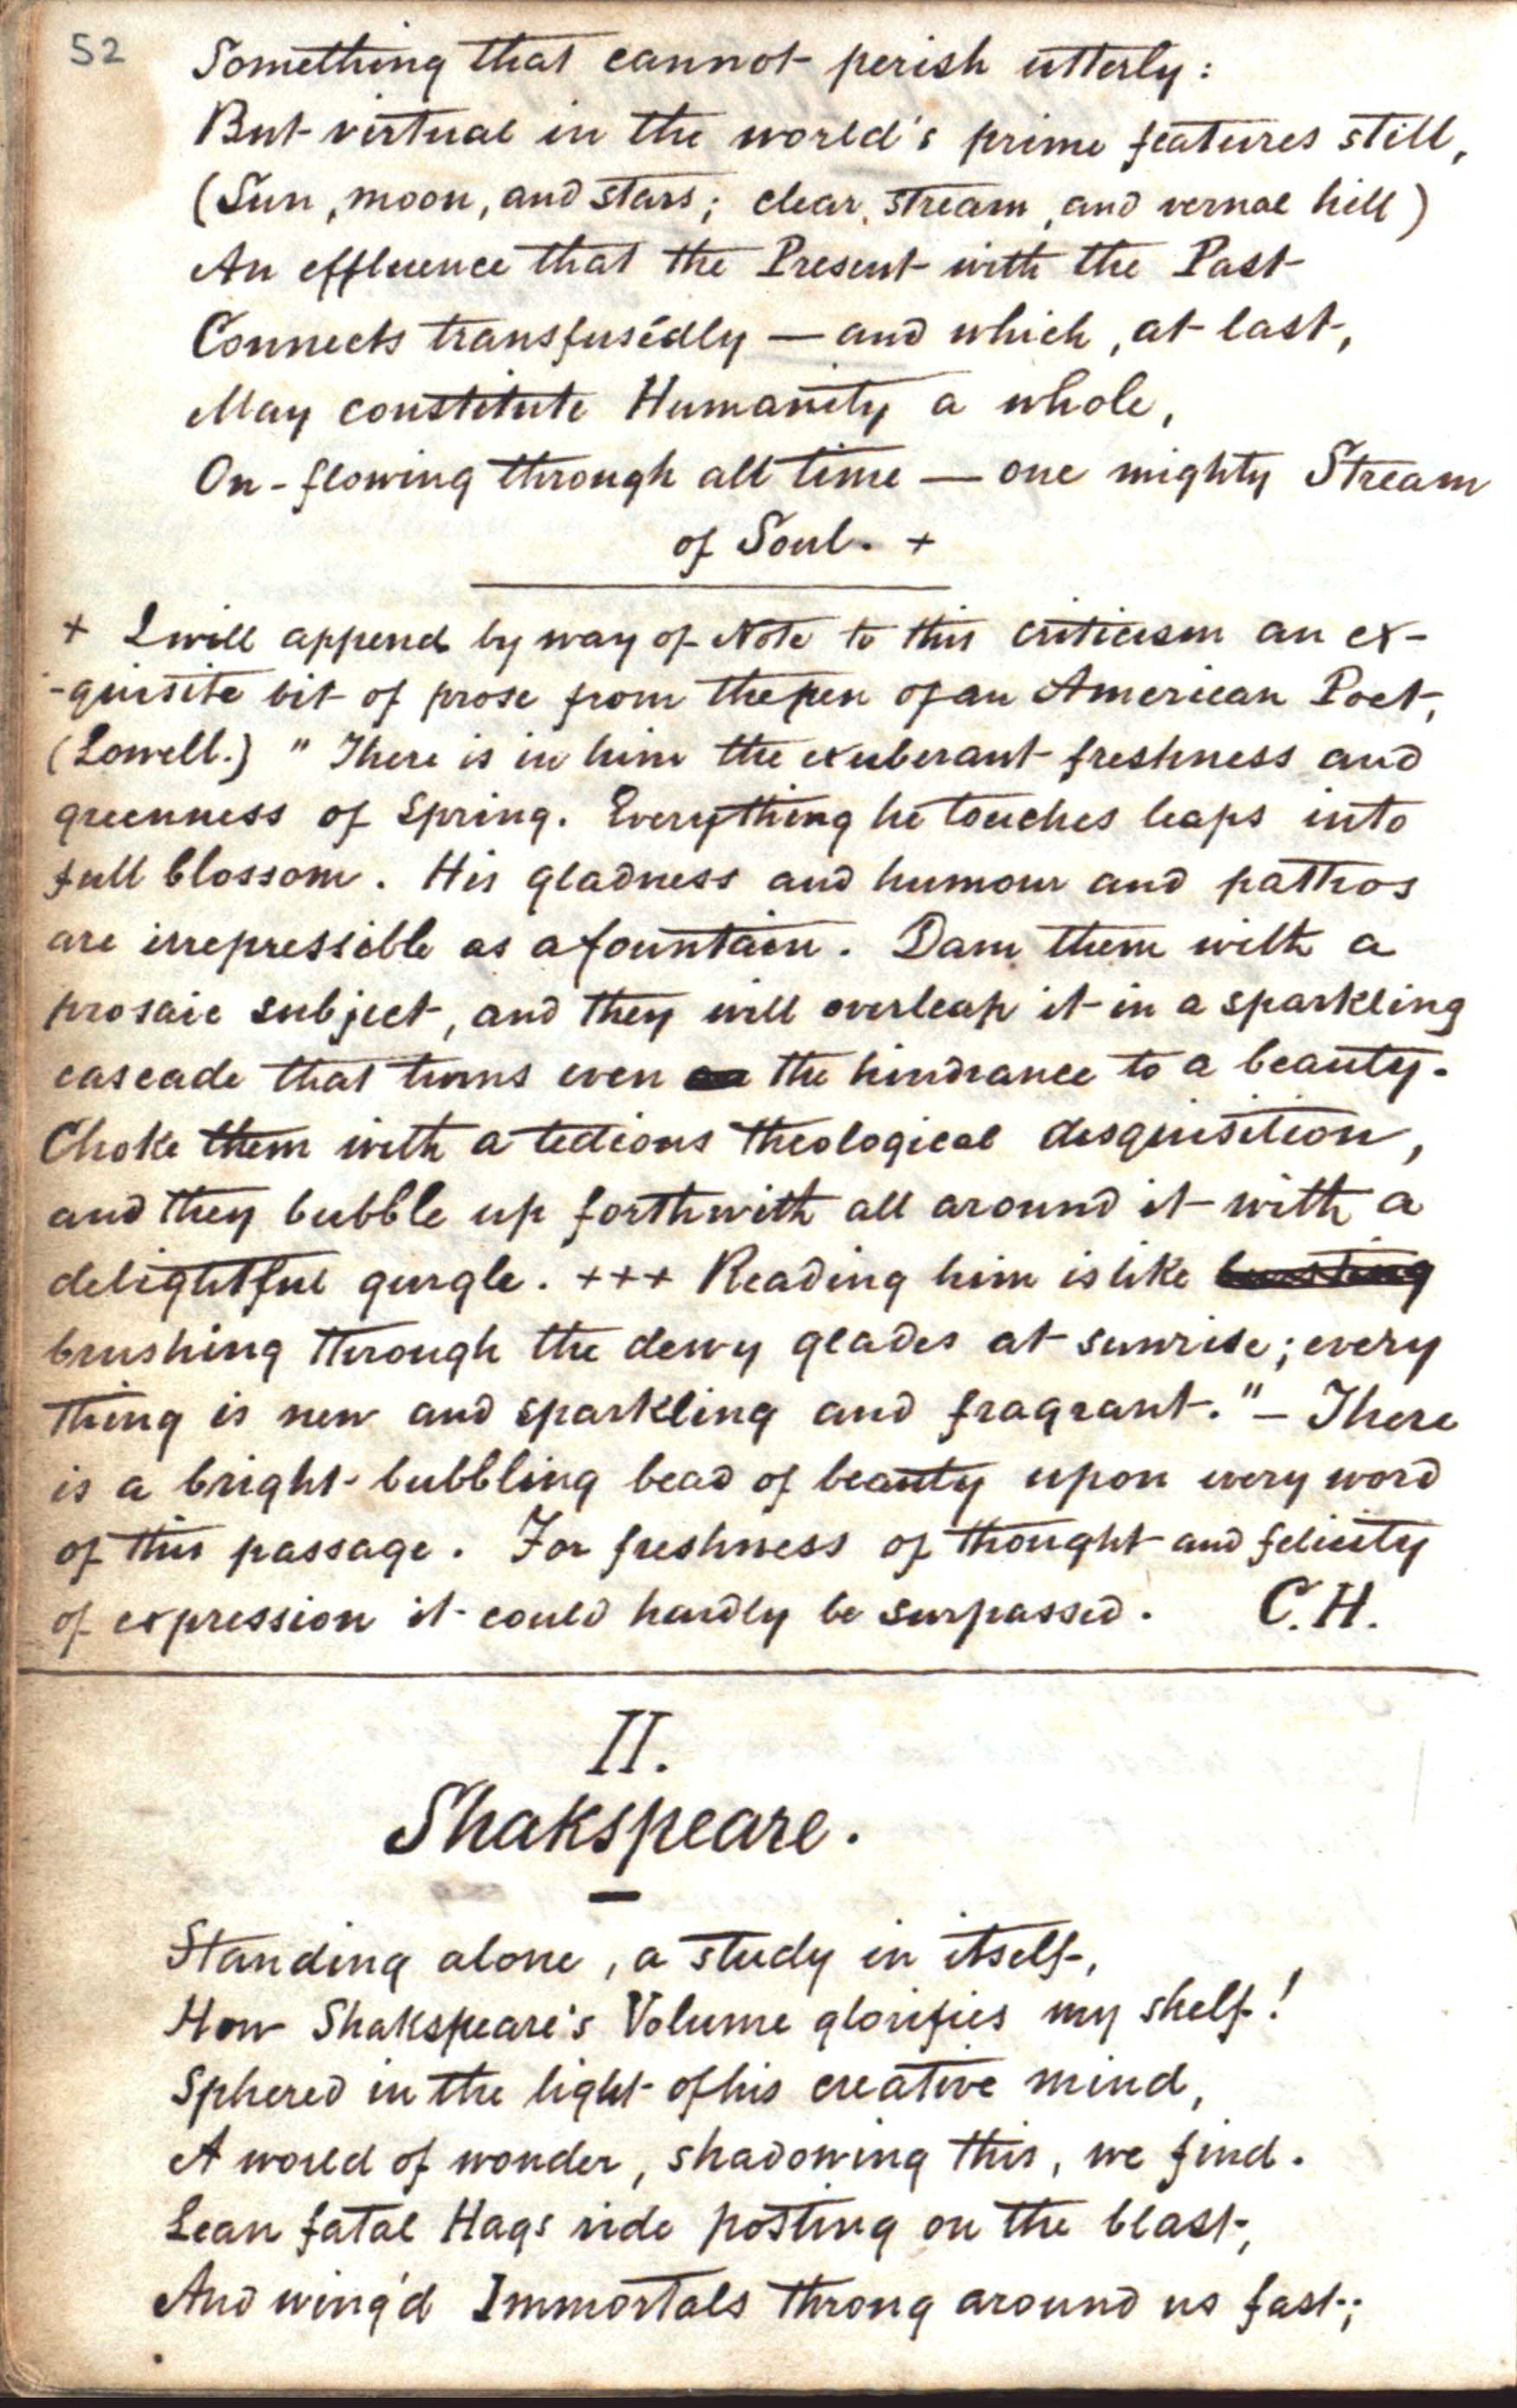 52
Something that cannot perish utterly:
But virtual in the world's prime features still,
(Sun, moon, and stars; clear stream, and vernal hill)
An effluence that the Present with the Past
Connects transfusédly — and which, at last,
May constitute Humanity a whole,
On-flowing through all time — one mighty Stream
of Soul. +
+ I will append by way of Note to this criticism an ex-
-quisite bit of prose from the pen of an American Poet,
(Lowell.) "There is in him the exuberant freshness and
greenness of Spring. Everything he touches leaps into
full blossom. His gladness and humour and pathos
are irrepressible as a fountain. Dam them with a
prosaic subject, and they will overleap it in a sparkling
cascade that turns even the hindrance to a beauty.
Choke them with a tedious theological disquisition,
and they bubble up forthwith all around it with a
delightful gurgle. +++ Reading him is like
brushing through the dewy glades at sunrise; every
thing is new and sparkling and fragrant." — There
is a bright-bubbling bead of beauty upon every word
of this passage. For freshness of thought and felicity
of expression it could hardly be surpassed. C.H.
II.
Shakspeare.
Standing alone, a study in itself,
How Shakspeare's Volume glorifies my shelf!
Sphered in the light of his creative mind,
A world of wonder, shadowing this, we find.
Lean fatal Hags ride posting on the blast,
And wing'd Immortals throng around us fast;